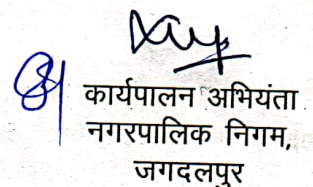 कार्यपालन अभियंता
नगरपालिक निगम,
जगदलपुर